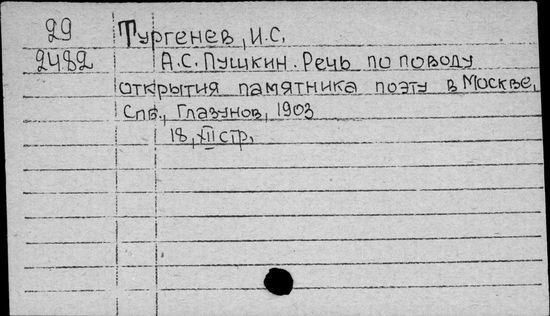 29 Тургенев, И.С.
2482 А.С. Пушкин. Речь по поводу
открытия памятника поэту в Москве,
Спб., Глазунов, 1903
18, XII стр.